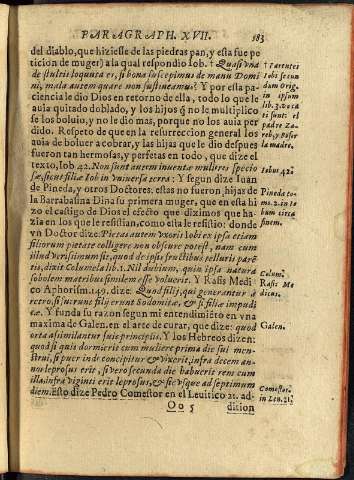 PARAGRAPH. XVII.
583
del diablo, que hiziesse de las piedras pan, y esta fue pe
ticion de muger) a la qual respondio Iob. † Quasi vna
de stultis loquuta es, si bona suscepimus de manu Domi
ni, mala autem quare non sustineamus? Y por esta pa
ciencia le dio Dios en retorno de ella, todo lo que le
auia quitado doblado, y los hijos q̃ no le multiplico
se los boluio, y no le dio mas, porque no los auia per
dido. Respeto de que en la resurreccion general los
auia de boluer a cobrar, y las hijas que le dio despues
fueron tan hermosas, y perfetas en todo, que dize el
texto, Iob 42. Non sunt autem inuentæ mulieres specio
sæ, sicut filiæ Iob in vniuersa terra: Y segun dize Iuan
de Pineda, y otros Doctores: estas no fueron, hijas de
la Barrabasina Dina su primera muger, que en esta hi
zo el castigo de Dios el efecto que diximos que ha-
zia en los que le resistian, como esta le resistio: donde
vn Doctor dize: Pietas autem vxoris Iobi ex ipsa etiam
filiorum pietate colligere non obscure potest, nam cum
illud verissimum sit, quod de ipsis fructibus telluris parẽ
tis, dixit Columela lib. 1. Nil dubium, quin ipsa natura
sobolem matri similem esse voluerit. Y Rasis Medi
co Aphorism. 145. dize: Quod filij, qui generantur à
retro, si surunt filij erunt Sodomitæ, & si filiæ impudi
cæ. Y funda su razon segun mi entendimiẽto en vna
maxima de Galen. en el arte de curar, que dize: quod
orta assimilantur suis principijs. Y los Hebreos dizen:
quod si quis dormierit cum muliere prima die sui men-
strui, si puer inde concipitur & vixerit, infra decem an-
nos leprosus erit, si vero secunda die habuerit rem cum
illa, infra viginti erit leprosus, & sic vsque ad septimum
diem. Esto dize Pedro Comestor en el Leuitico 21. ad-
Oo 5
dition
tobi secun
dum Orig.
in ipsum
padre
la madre.
Iob us 42.
Pineda to-
mo. 2. in Io
bum circa
finem.
Colum.
Rasis Me
dicus.
Galen.
Comestor.
in Leu. 21.